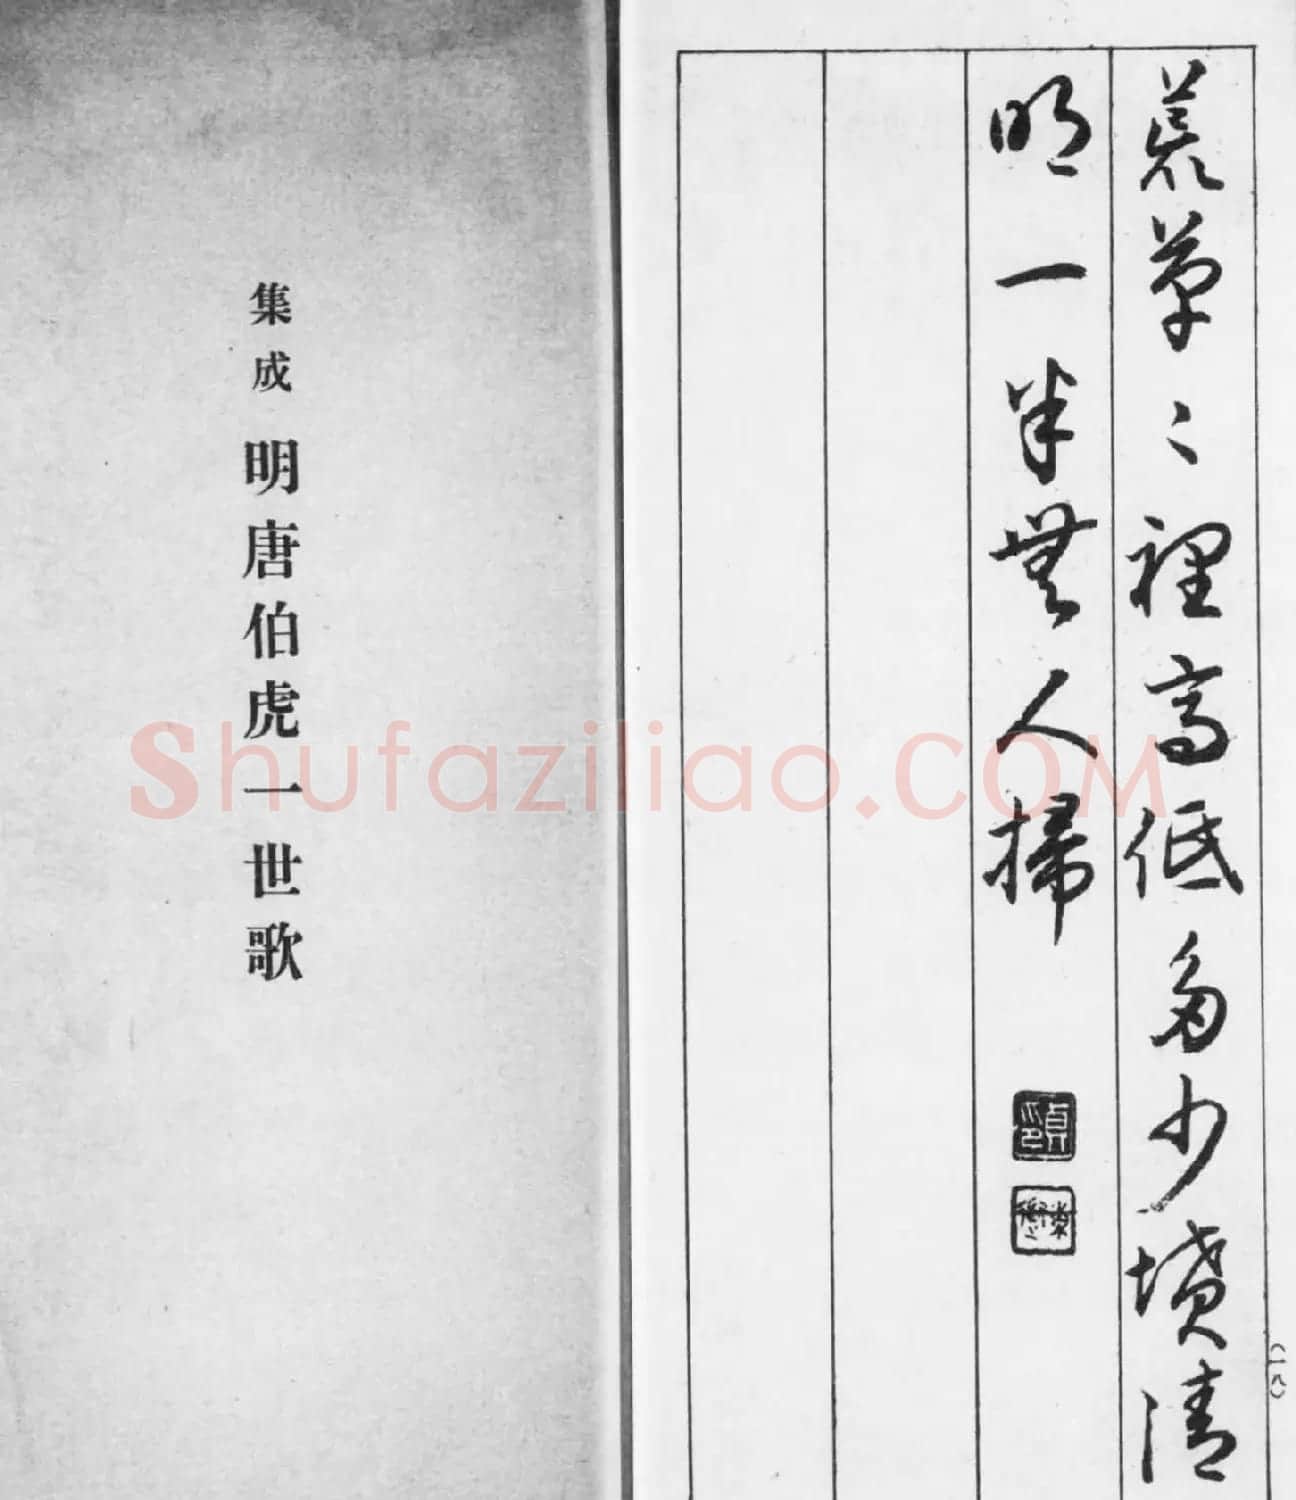 荒草々裡高低多少墳清
明一半無人掃
(一八)
集成 明唐伯虎一世歌
Shufaziliao.COM